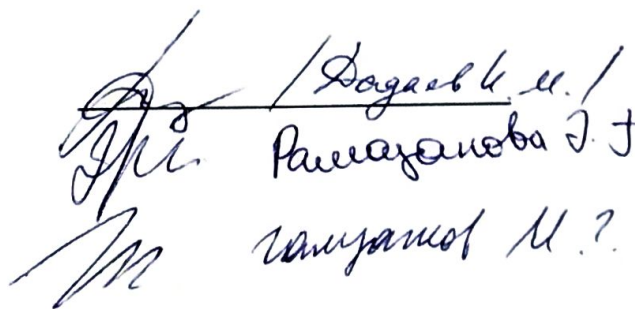 /Дадаев И. М./
Рамазанова Э. Г
Гамзатов М. Г.